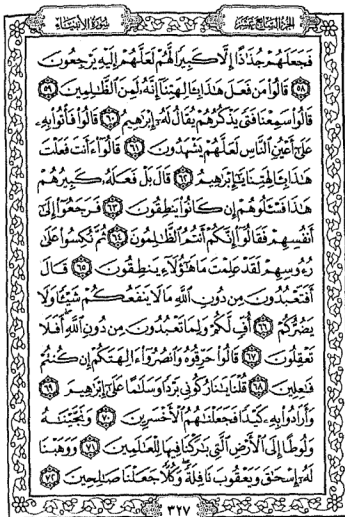 الجزء السابع عشر
سورة الأنبياء
فَجَعَلَهُمْ جُذَاذًا إِلَّا كَبِيرًا لَّهُمْ لَعَلَّهُمْ إِلَيْهِ يَرْجِعُونَ
٥٨ قَالُوا مَن فَعَلَ هَٰذَا بِآلِهَتِنَا إِنَّهُ لَمِنَ الظَّالِمِينَ ٥٩
قَالُوا سَمِعْنَا فَتًى يَذْكُرُهُمْ يُقَالُ لَهُ إِبْرَاهِيمُ ٦٠ قَالُوا فَأْتُوا بِهِ
عَلَىٰ أَعْيُنِ النَّاسِ لَعَلَّهُمْ يَشْهَدُونَ ٦١ قَالُوا ءَأَنتَ فَعَلْتَ
هَٰذَا بِآلِهَتِنَا يَا إِبْرَاهِيمُ ٦٢ قَالَ بَلْ فَعَلَهُ كَبِيرُهُمْ
هَٰذَا فَسْـَٔلُوهُمْ إِن كَانُوا يَنطِقُونَ ٦٣ فَرَجَعُوا إِلَىٰ
أَنفُسِهِمْ فَقَالُوا إِنَّكُمْ أَنتُمُ الظَّالِمُونَ ٦٤ ثُمَّ نُكِسُوا عَلَىٰ
رُءُوسِهِمْ لَقَدْ عَلِمْتَ مَا هَٰؤُلَاءِ يَنطِقُونَ ٦٥ قَالَ
أَفَتَعْبُدُونَ مِن دُونِ اللَّهِ مَا لَا يَنفَعُكُمْ شَيْئًا وَلَا
يَضُرُّكُمْ ٦٦ أُفٍّ لَّكُمْ وَلِمَا تَعْبُدُونَ مِن دُونِ اللَّهِ أَفَلَا
تَعْقِلُونَ ٦٧ قَالُوا حَرِّقُوهُ وَانصُرُوا آلِهَتَكُمْ إِن كُنتُمْ
فَاعِلِينَ ٦٨ قُلْنَا يَا نَارُ كُونِي بَرْدًا وَسَلَامًا عَلَىٰ إِبْرَاهِيمَ ٦٩
وَأَرَادُوا بِهِ كَيْدًا فَجَعَلْنَاهُمُ الْأَخْسَرِينَ ٧٠ وَنَجَّيْنَاهُ
وَلُوطًا إِلَى الْأَرْضِ الَّتِي بَارَكْنَا فِيهَا لِلْعَالَمِينَ ٧١ وَوَهَبْنَا
لَهُ إِسْحَاقَ وَيَعْقُوبَ نَافِلَةً وَكُلًّا جَعَلْنَا صَالِحِينَ ٧٢
٣٢٧